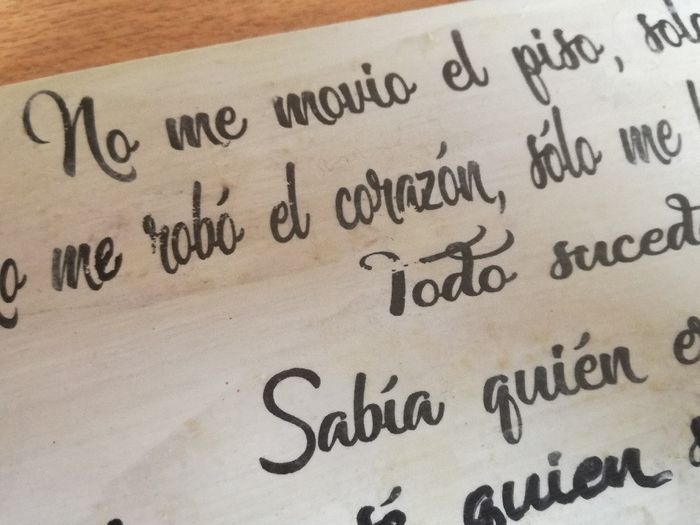 No me movio el piso,
me robó el corazón, sólo me
Todo
Sabía quién
quien